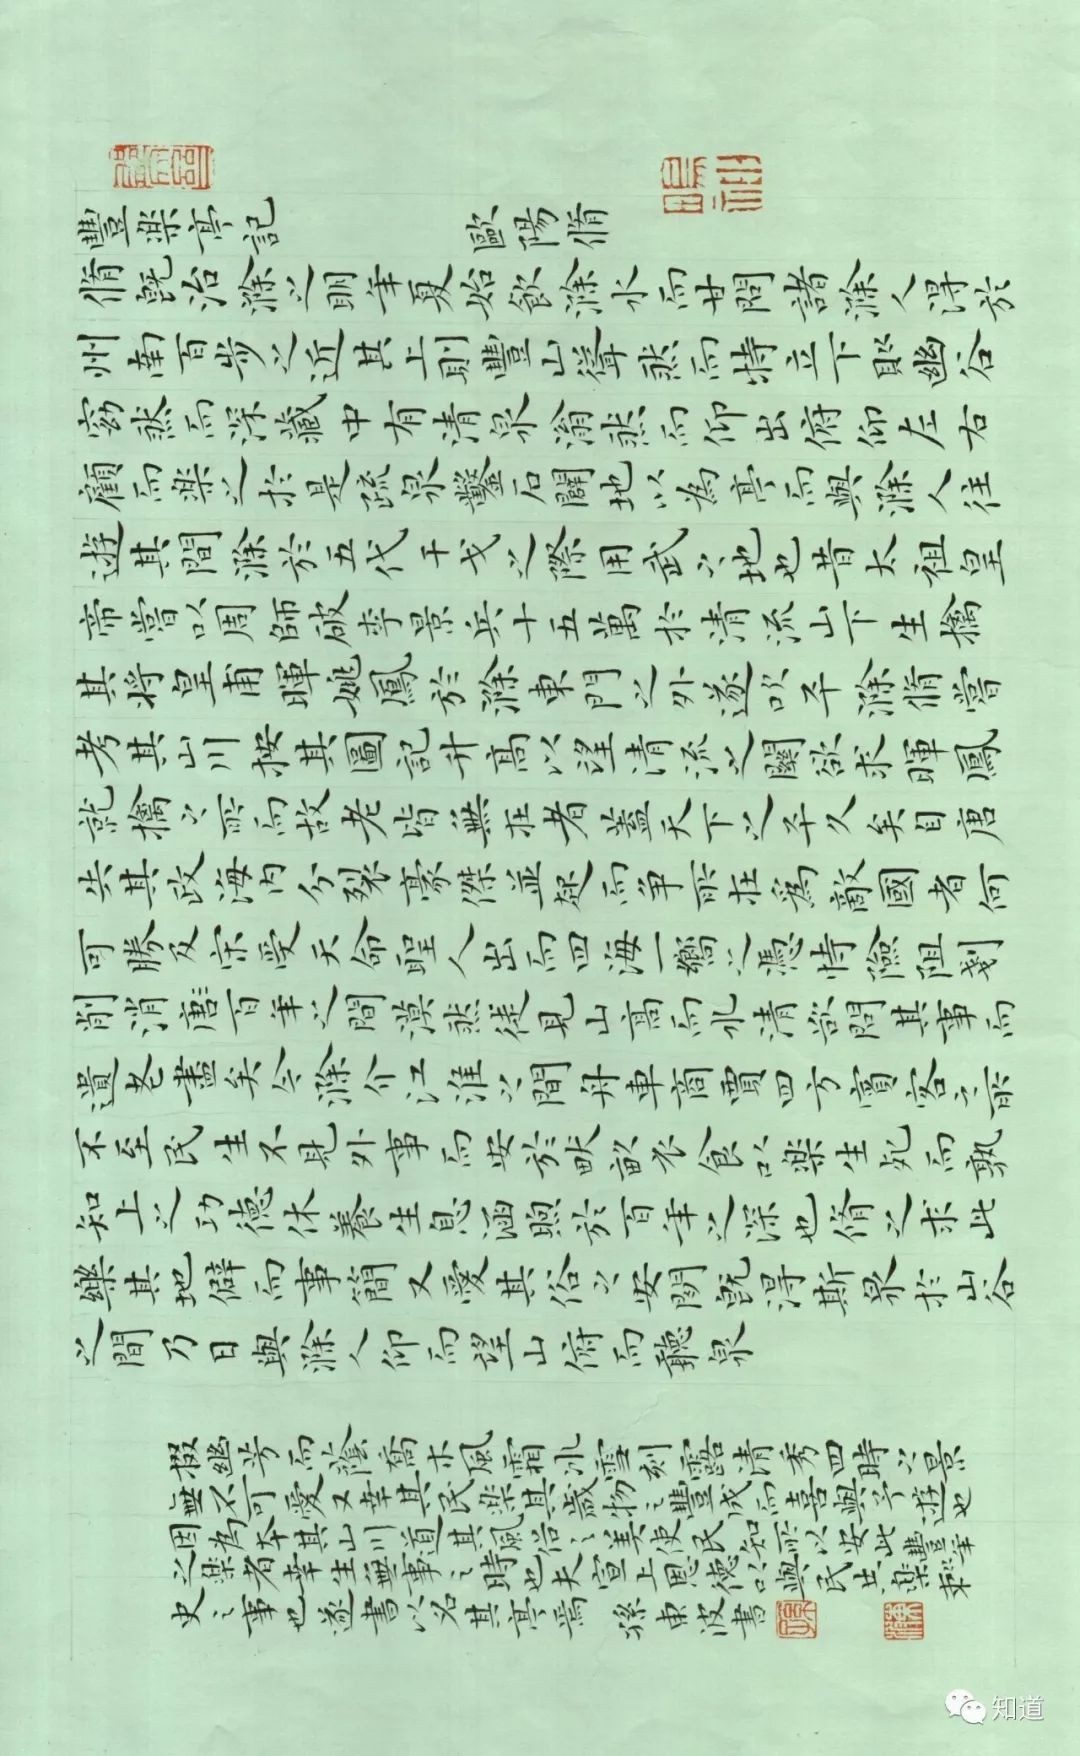 豐樂亭記 歐陽脩
脩既治滁之明年夏始飲滁水而甘問諸滁人得於
州南百步之近其上則豐山聳然而特立下則幽谷
窈然而深藏中有清泉滃然而仰出俯仰左右
顧而樂之於是疏泉鑿石闢地以為亭而與滁人往
遊其間滁於五代干戈之際用武之地也昔太祖皇
帝嘗以周師破李景兵十五萬於清流山下生擒
其將皇甫暉姚鳳於滁東門之外遂以平滁脩嘗
考其山川按其圖記升高以望清流之關欲求暉鳳
就擒之所而故老皆無在者蓋天下之平久矣自唐
失其政海內分裂豪傑並起而爭所在為敵國者何
可勝及宋受天命聖人出而四海一嚮之憑恃險阻剗
削消唐〻百年之間漠然徒見山高而水清欲問其事而
遺老盡矣今滁介江淮之間舟車商賈四方賓客之所
不至民生不見外事而安於畎畝衣食以樂生死而孰
知上之功德休養生息涵煦於百年之深也脩之來此
樂其地僻而事簡又愛其俗之安閒既得斯泉於山谷
之間乃日與滁人仰而望山俯而聽泉
掇幽芳而蔭喬木風霜冰雪刻露清秀四時之景
無不可愛又幸其民樂其歲物之豐成而喜與予遊也
因為本其山川道其風俗之美使民知所以安此豐年
之樂者幸生無事之時也夫宣上恩德以與民共樂刺
史之事也遂書以名其亭焉 孫東波書
知道